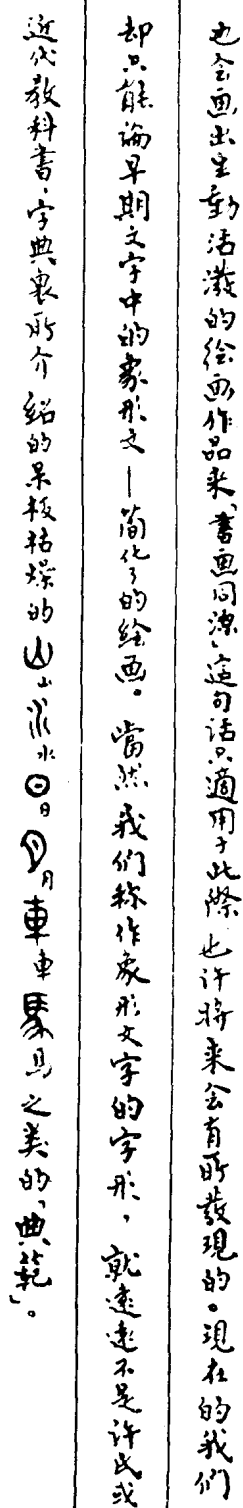 也会画出生動活潑的绘画作品来「書画同源」這句话只適用于此際 也许將来会有所發現的。現在的我們
却只能論早期文字中的象形文—简化了的绘画。當然我们称作象形文字的字形，就遠遠不是许氏或
近代教科書，字典裏所介紹的呆板枯燥的山山水水日日月月車車馬馬之类的「典範」。